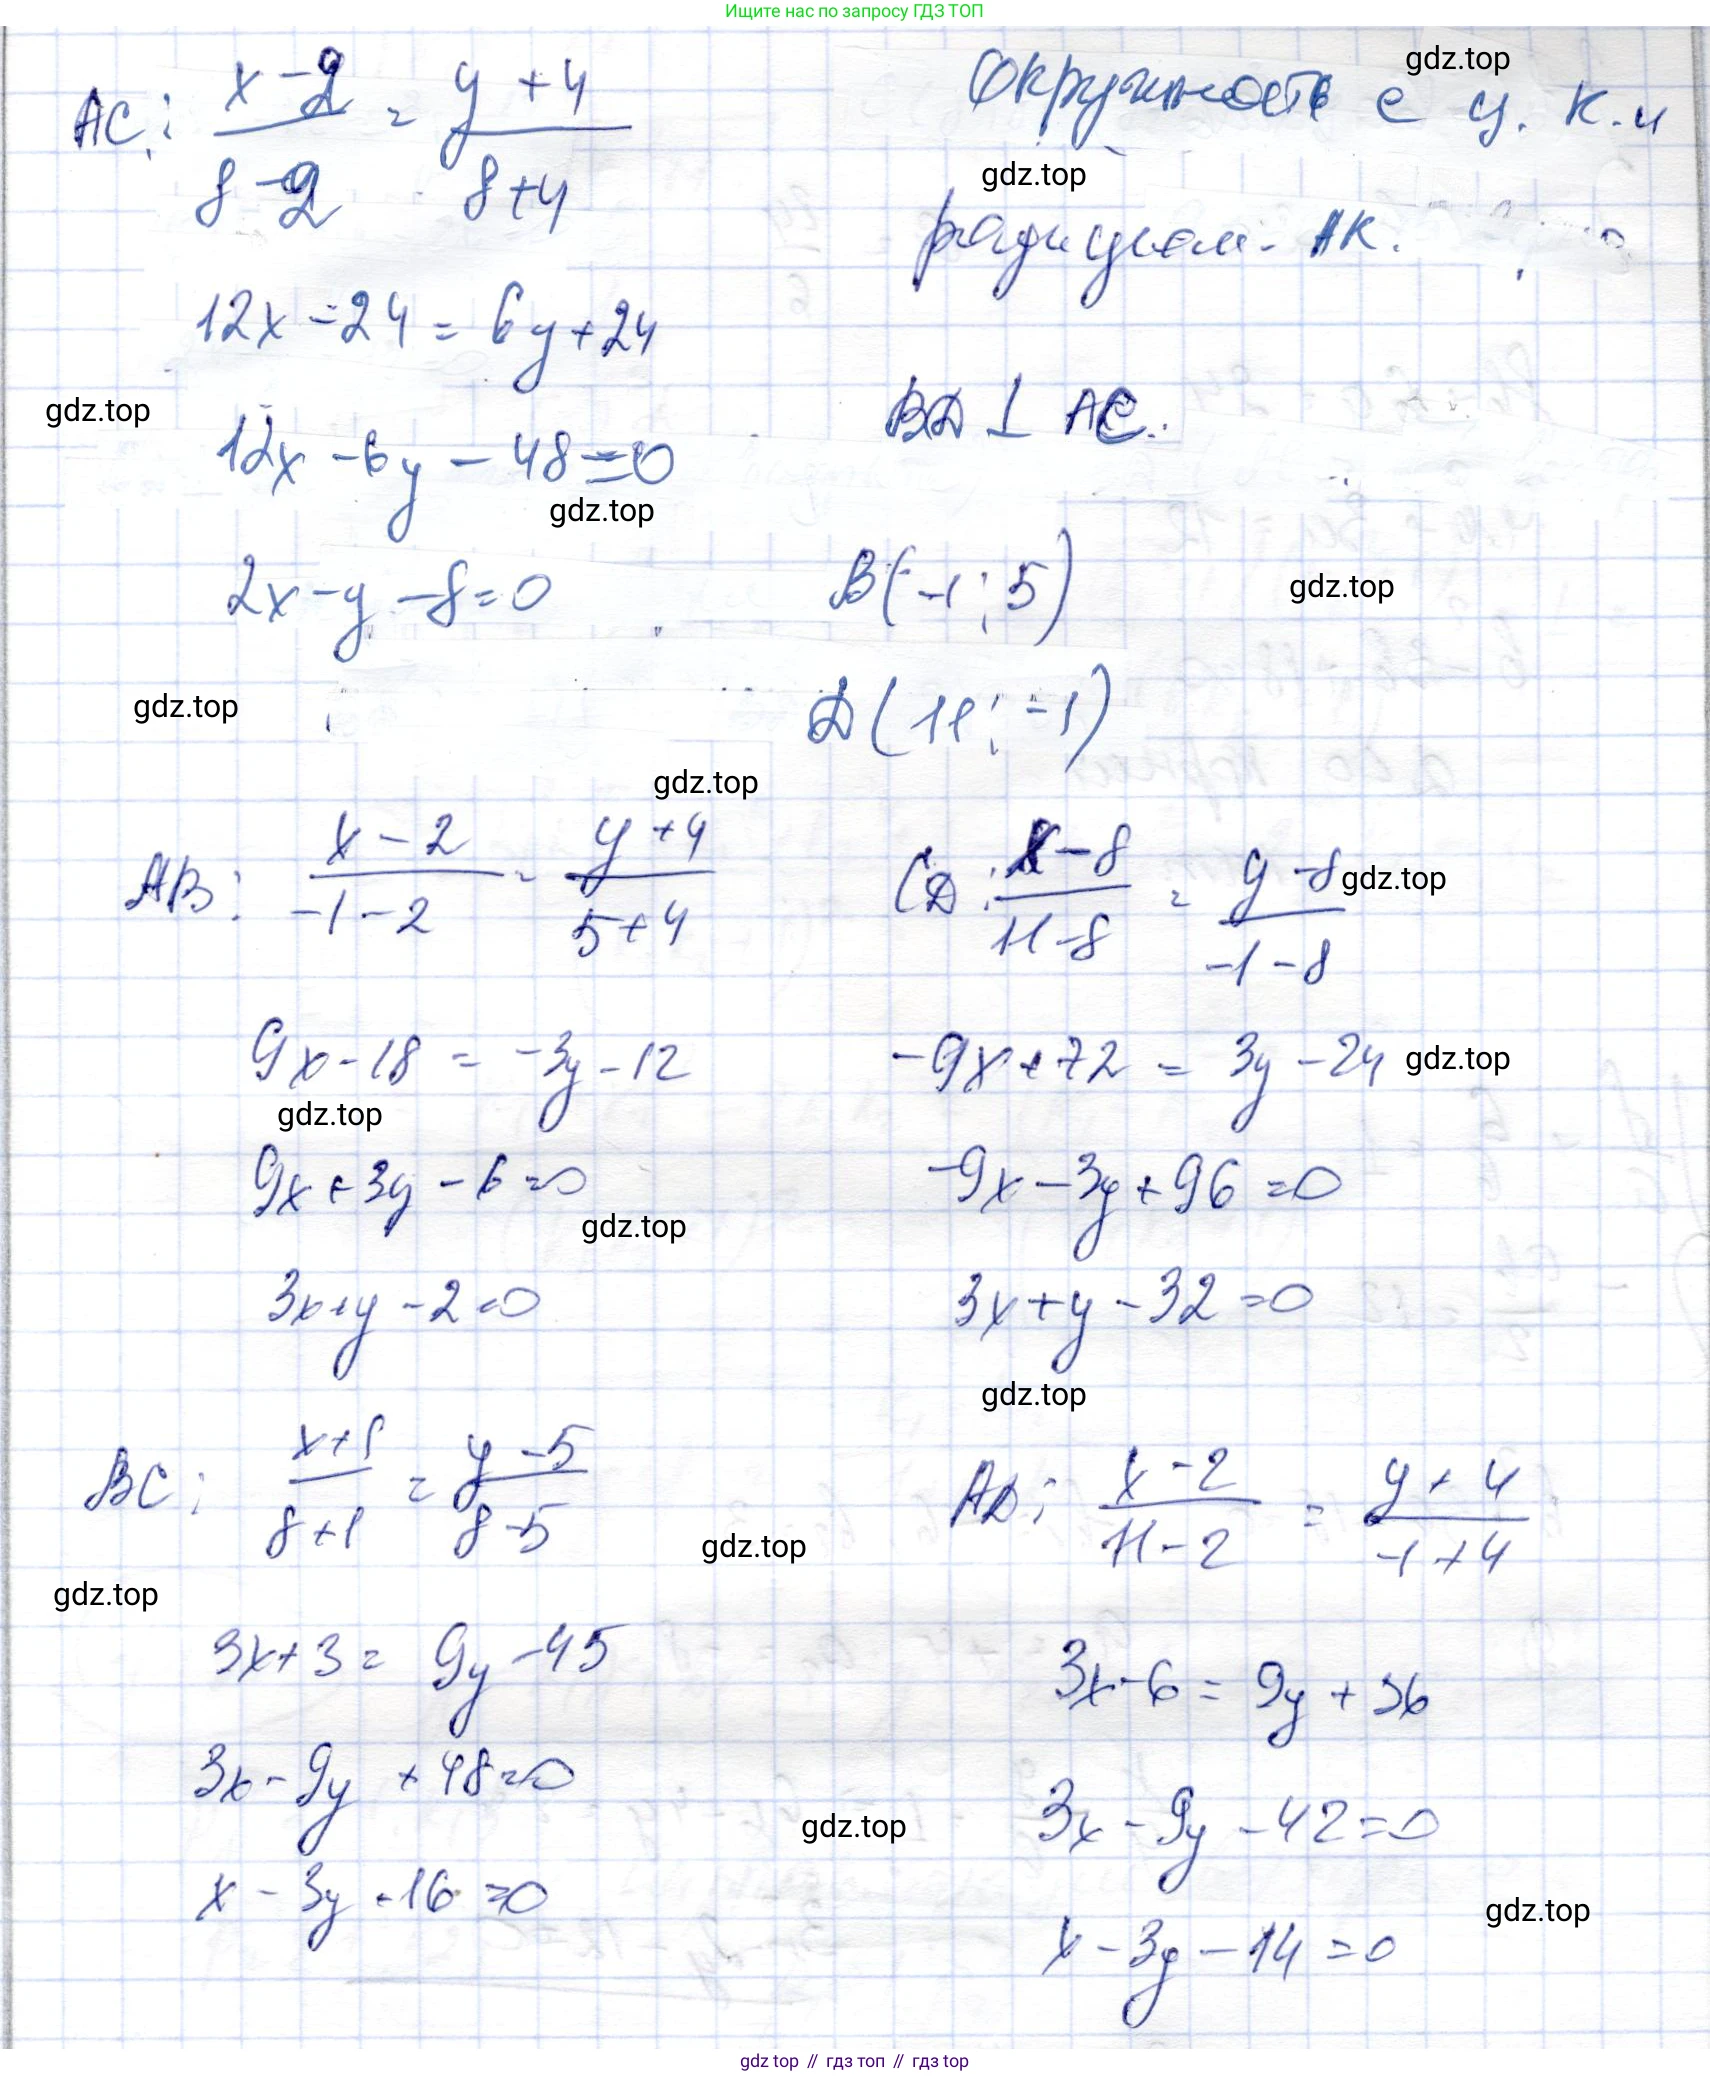 Ищите нас по запросу ГДЗ ТОП
AC: (x-2)/(8-2) = (y+4)/(8+4)
12x-24 = 6y+24
12x-6y-48=0
2x-y-8=0
Окружность с ц. K и
gdz.top
gdz.top
радиусом AK.
BD ⊥ AC.
gdz.top
gdz.top
B(-1; 5)
gdz.top
D(11; -1)
gdz.top
gdz.top
AB: (x-2)/(-1-2) = (y+4)/(5+4)
9x-18 = -3y-12
gdz.top
9x+3y-6=0
gdz.top
3x+y-2=0
CD: (x-8)/(11-8) = (y-8)/(-1-8)
gdz.top
-9x+72 = 3y-24
gdz.top
-9x-3y+96=0
3x+y-32=0
gdz.top
BC: (x+1)/(8+1) = (y-5)/(8-5)
gdz.top
gdz.top
3x+3 = 9y-45
3x-9y+48=0
x-3y+16=0
AD: (x-2)/(11-2) = (y+4)/(-1+4)
3x-6 = 9y+36
3x-9y-42=0
gdz.top
x-3y-14=0
gdz.top
gdz top // гдз топ // гдз top